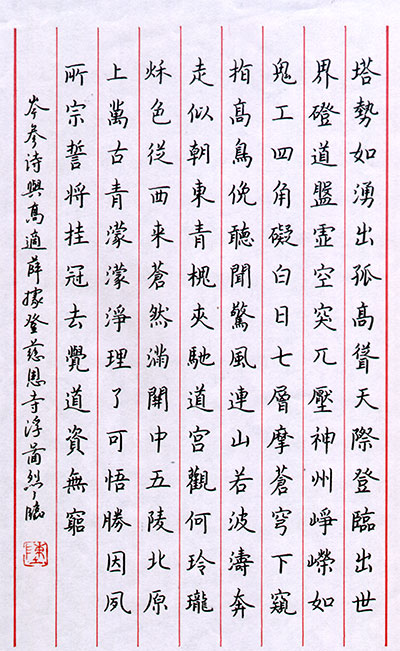 塔勢如湧出孤高聳天際登臨出世
界磴道盤虛空突兀壓神州崢嶸如
鬼工四角礙白日七層摩蒼穹下窺
指高鳥俛聽聞驚風連山若波濤奔
走似朝東青槐夾馳道宮觀何玲瓏
秌色從西来蒼然滿開中五陵北原
上萬古青濛濛淨理了可悟勝因夙
所宗誓将挂冠去覺道資無窮
岑參诗與高適薛據登慈恩寺浮圖